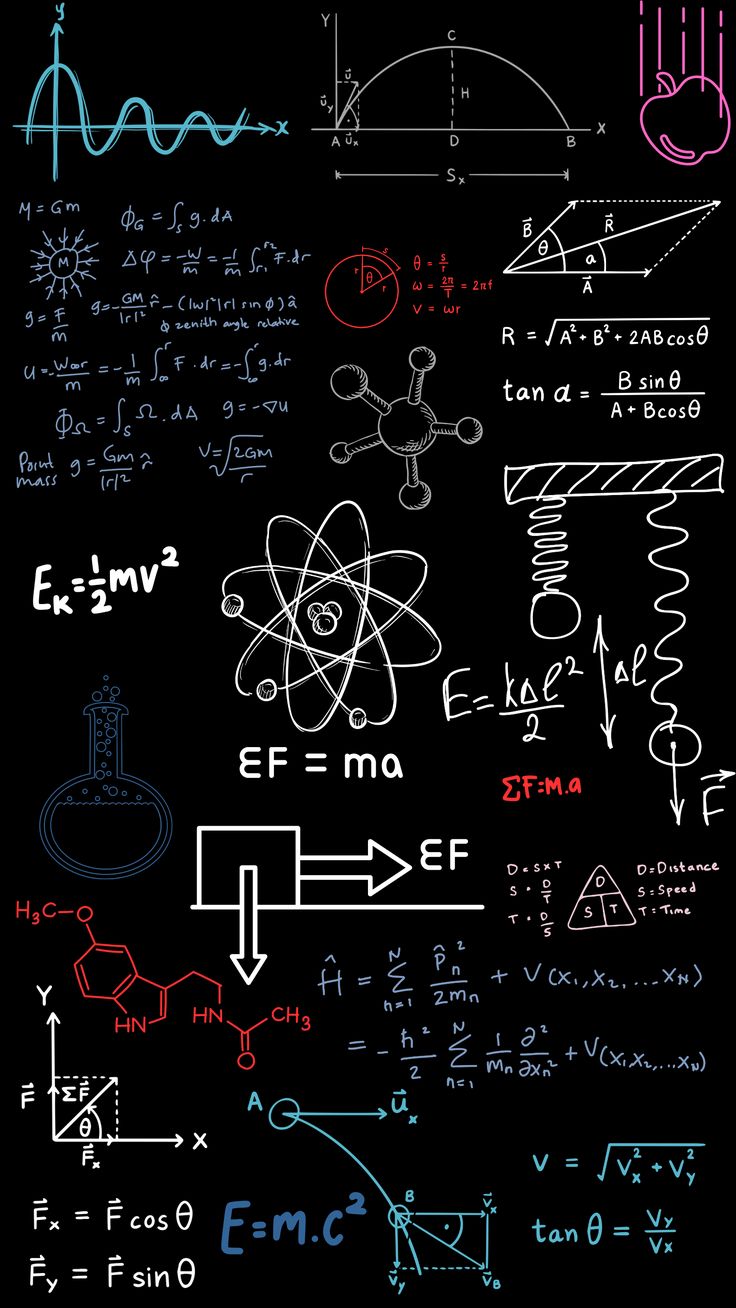 y
x
Y
C
H
u
u⃗y
u⃗x
A
D
B
X
Sx
M = Gm
M
ϕG = ∫s g.dA
Δφ = -W/m = -1/m ∫r1^r2 F.dr
g = F/m
g = -GM/|r|² r̂ - (|w|²|r| sin ϕ) â
ϕ zenith angle relative
u = W∞r/m = -1/m ∫∞^r F.dr = -∫∞^r g.dr
ΦΩ = ∫s Ω.dA
g = -∇u
Point mass
g = Gm/|r|² r̂
V = √(2Gm/r)
s
r
θ
r
θ = s/r
ω = 2π/T = 2πf
V = ωr
B⃗
R⃗
θ
a
A⃗
R = √(A² + B² + 2ABcosθ)
tan α = B sinθ / A + Bcosθ
EK = ½mv²
E = kΔℓ²/2
Δℓ
F⃗
ƐF = ma
ΣF=M.a
ƐF
D = S×T
S = D/T
T = D/S
D
S
T
D=Distance
S=Speed
T=Time
H₃C–O
HN
HN
CH₃
O
Ĥ = Σ(n=1→N) P̂n²/2mn + V(x₁,x₂,...xN)
= -ħ²/2 Σ(n=1→N) 1/mn ∂²/∂xn² + V(x₁,x₂,...xN)
Y
F⃗
ΣF⃗
θ
F⃗x
X
A
u⃗x
B
v⃗x
v⃗y
v⃗B
V = √(Vx² + Vy²)
tanθ = Vy/Vx
F⃗x = F⃗ cosθ
F⃗y = F⃗ sinθ
E=m.c²